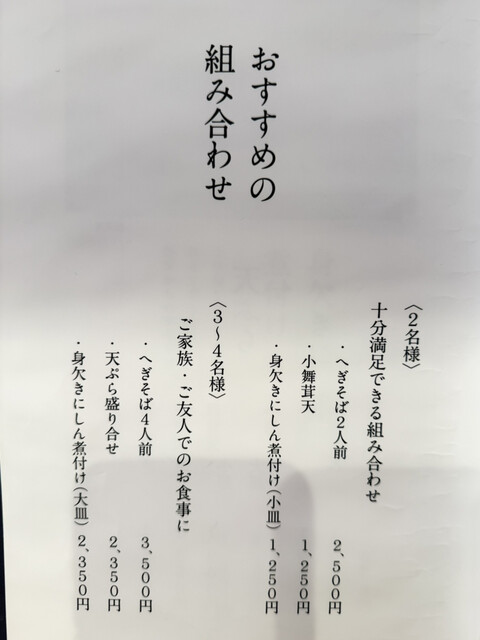 おすすめの
組み合わせ
〈２名様〉
十分満足できる組み合わせ
・へぎそば２人前　２、５００円
・小舞茸天　１、２５０円
・身欠きにしん煮付け（小皿）　１、２５０円
〈３〜４名様〉
ご家族・ご友人でのお食事に
・へぎそば４人前　３、５００円
・天ぷら盛り合せ　２、３５０円
・身欠きにしん煮付け（大皿）　２、３５０円